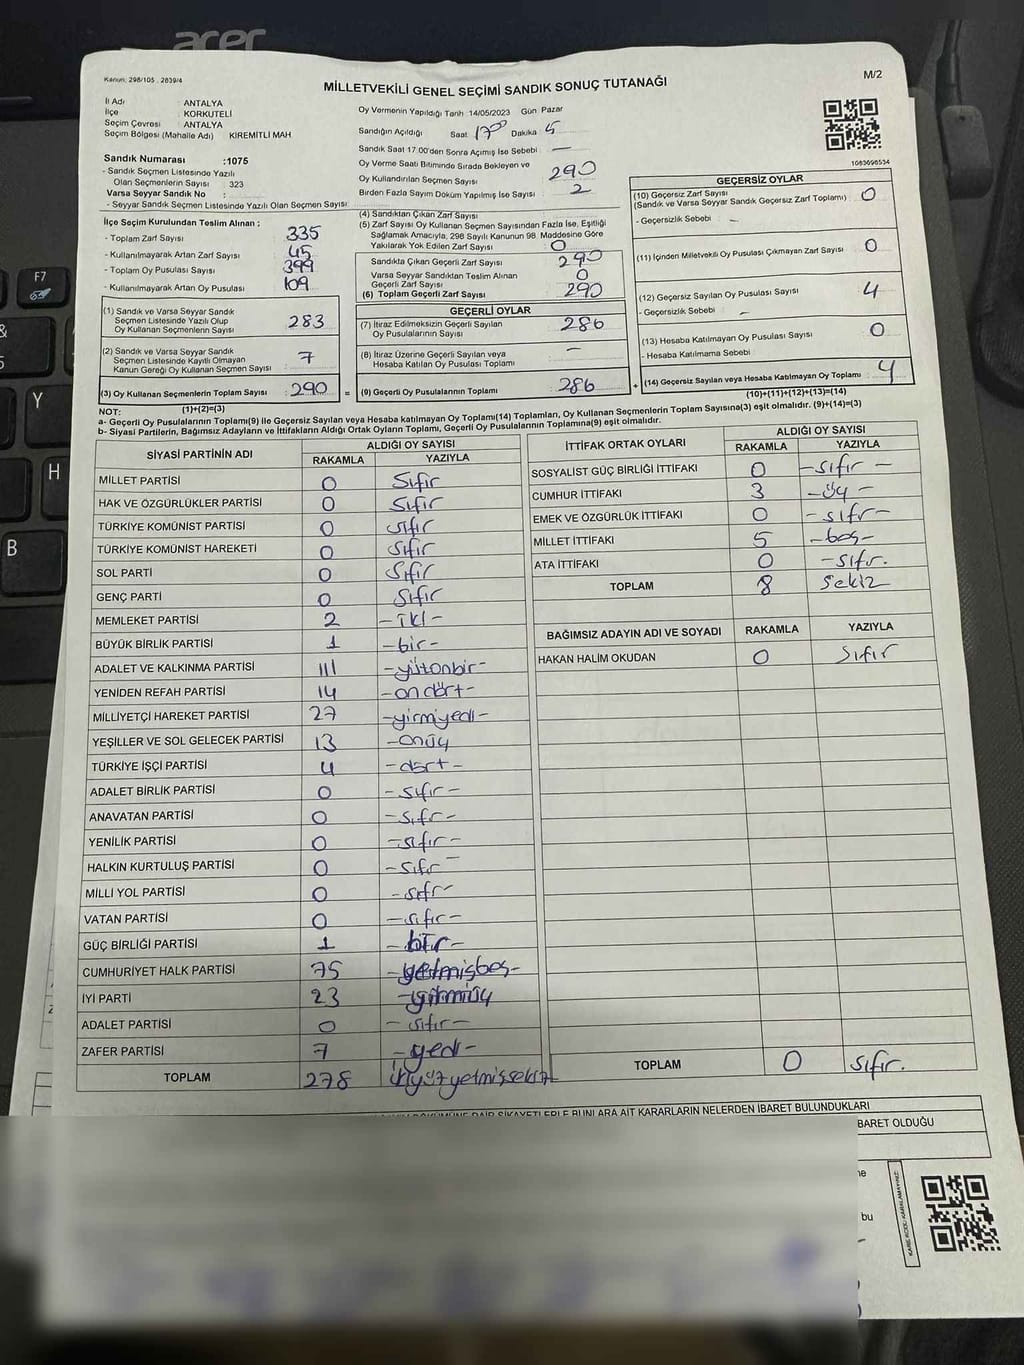 acer
Kanun: 298/105 . 2839/4
MİLLETVEKİLİ GENEL SEÇİMİ SANDIK SONUÇ TUTANAĞI
M/2
İl Adı : ANTALYA
İlçe : KORKUTELİ
Seçim Çevresi : ANTALYA
Seçim Bölgesi (Mahalle Adı) KİREMİTLİ MAH.
Oy Vermenin Yapıldığı Tarih 14/05/2023 Gün Pazar
Sandığın Açıldığı Saat 17⁰⁰ Dakika 5
Sandık Saat 17:00'den Sonra Açımış İse Sebebi : —
Oy Verme Saati Bitiminde Sırada Bekleyen ve
Oy Kullandırılan Seçmen Sayısı 290
Birden Fazla Sayım Döküm Yapılmış İse Sayısı : 2
1083698534
Sandık Numarası :1075
- Sandık Seçmen Listesinde Yazılı
Olan Seçmenlerin Sayısı : 323
Varsa Seyyar Sandık No :
- Seyyar Sandık Seçmen Listesinde Yazılı Olan Seçmen Sayısı:
İlçe Seçim Kurulundan Teslim Alınan :
- Toplam Zarf Sayısı 335
- Kullanılmayarak Artan Zarf Sayısı 45
- Toplam Oy Pusulası Sayısı 399
- Kullanılmayarak Artan Oy Pusulası 109
(1) Sandık ve Varsa Seyyar Sandık
Seçmen Listesinde Yazılı Olup
Oy Kullanan Seçmenlerin Sayısı 283
(2) Sandık ve Varsa Seyyar Sandık
Seçmen Listesinde Kayıtlı Olmayan
Kanun Gereği Oy Kullanan Seçmen Sayısı : 7
(3) Oy Kullanan Seçmenlerin Toplam Sayısı : 290 =
(1)+(2)=(3)
(4) Sandıktan Çıkan Zarf Sayısı
(5) Zarf Sayısı Oy Kullanan Seçmen Sayısından Fazla İse, Eşitliği
Sağlamak Amacıyla, 298 Sayılı Kanunun 98. Maddesine Göre
Yakılarak Yok Edilen Zarf Sayısı : 0
Sandıkta Çıkan Geçerli Zarf Sayısı : 290
Varsa Seyyar Sandıktan Teslim Alınan
Geçerli Zarf Sayısı : 0
(6) Toplam Geçerli Zarf Sayısı : 290
GEÇERLİ OYLAR
(7) İtiraz Edilmeksizin Geçerli Sayılan
Oy Pusulalarının Sayısı : 286
(8) İtiraz Üzerine Geçerli Sayılan veya
Hesaba Katılan Oy Pusulası Toplamı : —
(9) Geçerli Oy Pusulalarının Toplamı : 286 +
GEÇERSİZ OYLAR
(10) Geçersiz Zarf Sayısı
(Sandık ve Varsa Seyyar Sandık Geçersiz Zarf Toplamı) : 0
- Geçersizlik Sebebi : —
(11) İçinden Milletvekili Oy Pusulası Çıkmayan Zarf Sayısı : 0
(12) Geçersiz Sayılan Oy Pusulası Sayısı : 4
- Geçersizlik Sebebi : —
(13) Hesaba Katılmayan Oy Pusulası Sayısı : 0
- Hesaba Katılmama Sebebi :
(14) Geçersiz Sayılan veya Hesaba Katılmayan Oy Toplamı : 4
(10)+(11)+(12)+(13)=(14)
NOT:
a- Geçerli Oy Pusulalarının Toplamı(9) ile Geçersiz Sayılan veya Hesaba katılmayan Oy Toplamı(14) Toplamları, Oy Kullanan Seçmenlerin Toplam Sayısına(3) eşit olmalıdır. (9)+(14)=(3)
b- Siyasi Partilerin, Bağımsız Adayların ve İttifakların Aldığı Ortak Oyların Toplamı, Geçerli Oy Pusulalarının Toplamına(9) eşit olmalıdır.
SİYASİ PARTİNİN ADI ALDIĞI OY SAYISI
RAKAMLA YAZIYLA
MİLLET PARTİSİ 0 Sıfır
HAK VE ÖZGÜRLÜKLER PARTİSİ 0 Sıfır
TÜRKİYE KOMÜNİST PARTİSİ 0 sıfır
TÜRKİYE KOMÜNİST HAREKETİ 0 Sıfır
SOL PARTİ 0 Sıfır
GENÇ PARTİ 0 Sıfır
MEMLEKET PARTİSİ 2 -iki-
BÜYÜK BİRLİK PARTİSİ 1 -bir-
ADALET VE KALKINMA PARTİSİ 111 -yüzonbir-
YENİDEN REFAH PARTİSİ 14 -ondört-
MİLLİYETÇİ HAREKET PARTİSİ 27 -yirmiyedi-
YEŞİLLER VE SOL GELECEK PARTİSİ 13 -onüç
TÜRKİYE İŞÇİ PARTİSİ 4 -dört-
ADALET BİRLİK PARTİSİ 0 -sıfır-
ANAVATAN PARTİSİ 0 -sıfır-
YENİLİK PARTİSİ 0 -sıfır-
HALKIN KURTULUŞ PARTİSİ 0 -sıfır-
MİLLİ YOL PARTİSİ 0 -sıfır-
VATAN PARTİSİ 0 -sıfır-
GÜÇ BİRLİĞİ PARTİSİ 1 -bir-
CUMHURİYET HALK PARTİSİ 75 -yetmişbeş-
İYİ PARTİ 23 -yirmiüç
ADALET PARTİSİ 0 -sıfır-
ZAFER PARTİSİ 7 -yedi-
TOPLAM 278 ikiyüzyetmişsekiz
İTTİFAK ORTAK OYLARI ALDIĞI OY SAYISI
RAKAMLA YAZIYLA
SOSYALİST GÜÇ BİRLİĞİ İTTİFAKI 0 -sıfır-
CUMHUR İTTİFAKI 3 -üç-
EMEK VE ÖZGÜRLÜK İTTİFAKI 0 -sıfır-
MİLLET İTTİFAKI 5 -beş-
ATA İTTİFAKI 0 -sıfır.
TOPLAM 8 sekiz
BAĞIMSIZ ADAYIN ADI VE SOYADI RAKAMLA YAZIYLA
HAKAN HALİM OKUDAN 0 Sıfır
TOPLAM 0 sıfır.
DÖKÜMÜNE DAİR ŞİKAYETLERLE BUNLARA AİT KARARLARIN NELERDEN İBARET BULUNDUKLARI
BARET OLDUĞU
bu
KARE KODU KARALAMAYINIZ
F7
Y
H
B